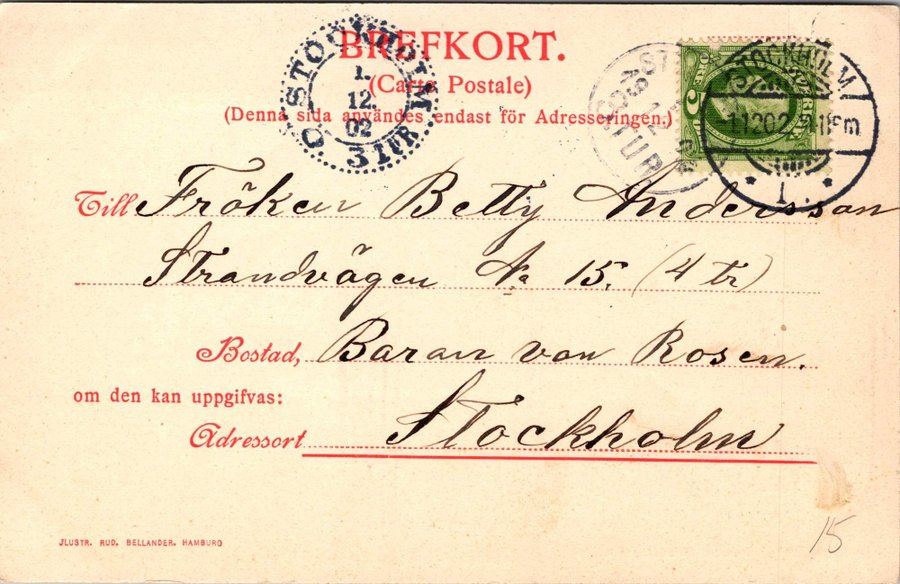 BREFKORT.
(Carte Postale)
(Denna sida användes endast för Adresseringen.)
STOCKHOLM
1.
12.
02
3 TUR
STOCKHOLM
1.12.02
1.
SVERIGE
Till Fröken Betty Andersson
Strandvägen No 15. (4 tr)
Bostad, Baran von Rosen.
om den kan uppgifvas:
Adressort Stockholm
JLUSTR. RUD. BELLANDER. HAMBURG
15